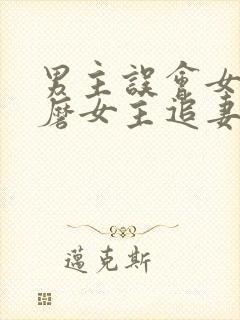 男主誤會女
磨女主追妻
邁克斯